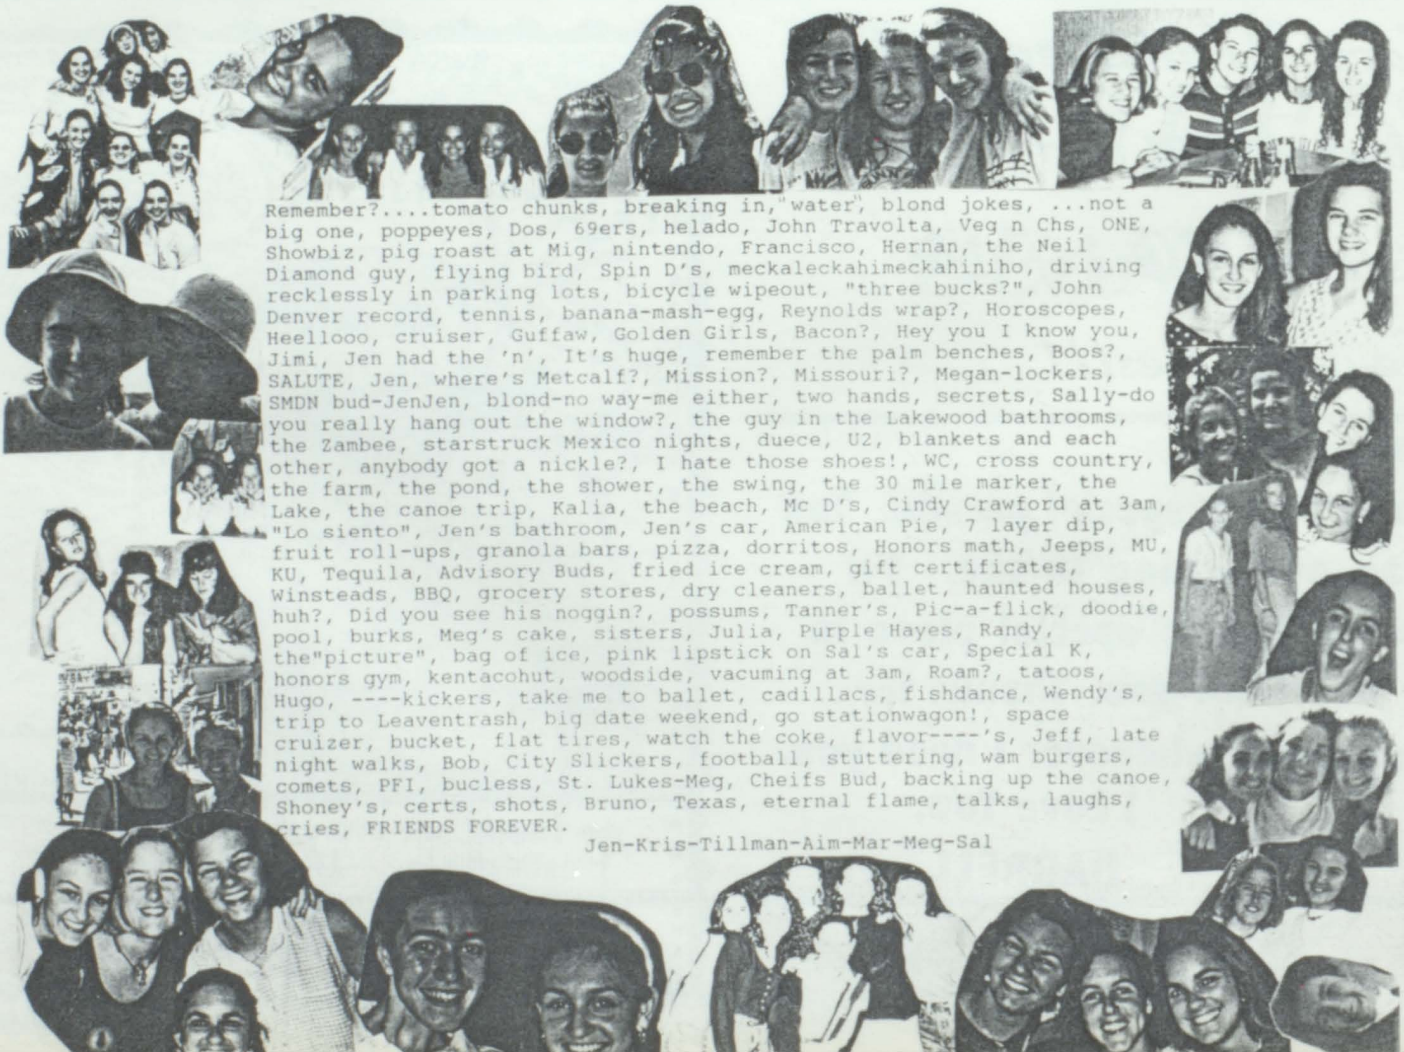 Remember?....tomato chunks, breaking in,"water", blond jokes, ...not a
big one, poppeyes, Dos, 69ers, helado, John Travolta, Veg n Chs, ONE,
Showbiz, pig roast at Mig, nintendo, Francisco, Hernan, the Neil
Diamond guy, flying bird, Spin D's, meckaleckahimeckahiniho, driving
recklessly in parking lots, bicycle wipeout, "three bucks?", John
Denver record, tennis, banana-mash-egg, Reynolds wrap?, Horoscopes,
Heellooo, cruiser, Guffaw, Golden Girls, Bacon?, Hey you I know you,
Jimi, Jen had the 'n', It's huge, remember the palm benches, Boos?,
SALUTE, Jen, where's Metcalf?, Mission?, Missouri?, Megan-lockers,
SMDN bud-JenJen, blond-no way-me either, two hands, secrets, Sally-do
you really hang out the window?, the guy in the Lakewood bathrooms,
the Zambee, starstruck Mexico nights, duece, U2, blankets and each
other, anybody got a nickle?, I hate those shoes!, WC, cross country,
the farm, the pond, the shower, the swing, the 30 mile marker, the
Lake, the canoe trip, Kalia, the beach, Mc D's, Cindy Crawford at 3am,
"Lo siento", Jen's bathroom, Jen's car, American Pie, 7 layer dip,
fruit roll-ups, granola bars, pizza, dorritos, Honors math, Jeeps, MU,
KU, Tequila, Advisory Buds, fried ice cream, gift certificates,
Winsteads, BBQ, grocery stores, dry cleaners, ballet, haunted houses,
huh?, Did you see his noggin?, possums, Tanner's, Pic-a-flick, doodie,
pool, burks, Meg's cake, sisters, Julia, Purple Hayes, Randy,
the"picture", bag of ice, pink lipstick on Sal's car, Special K,
honors gym, kentacohut, woodside, vacuming at 3am, Roam?, tatoos,
Hugo, ----kickers, take me to ballet, cadillacs, fishdance, Wendy's,
trip to Leaventrash, big date weekend, go stationwagon!, space
cruizer, bucket, flat tires, watch the coke, flavor----'s, Jeff, late
night walks, Bob, City Slickers, football, stuttering, wam burgers,
comets, PFI, bucless, St. Lukes-Meg, Cheifs Bud, backing up the canoe,
Shoney's, certs, shots, Bruno, Texas, eternal flame, talks, laughs,
cries, FRIENDS FOREVER.
Jen-Kris-Tillman-Aim-Mar-Meg-Sal